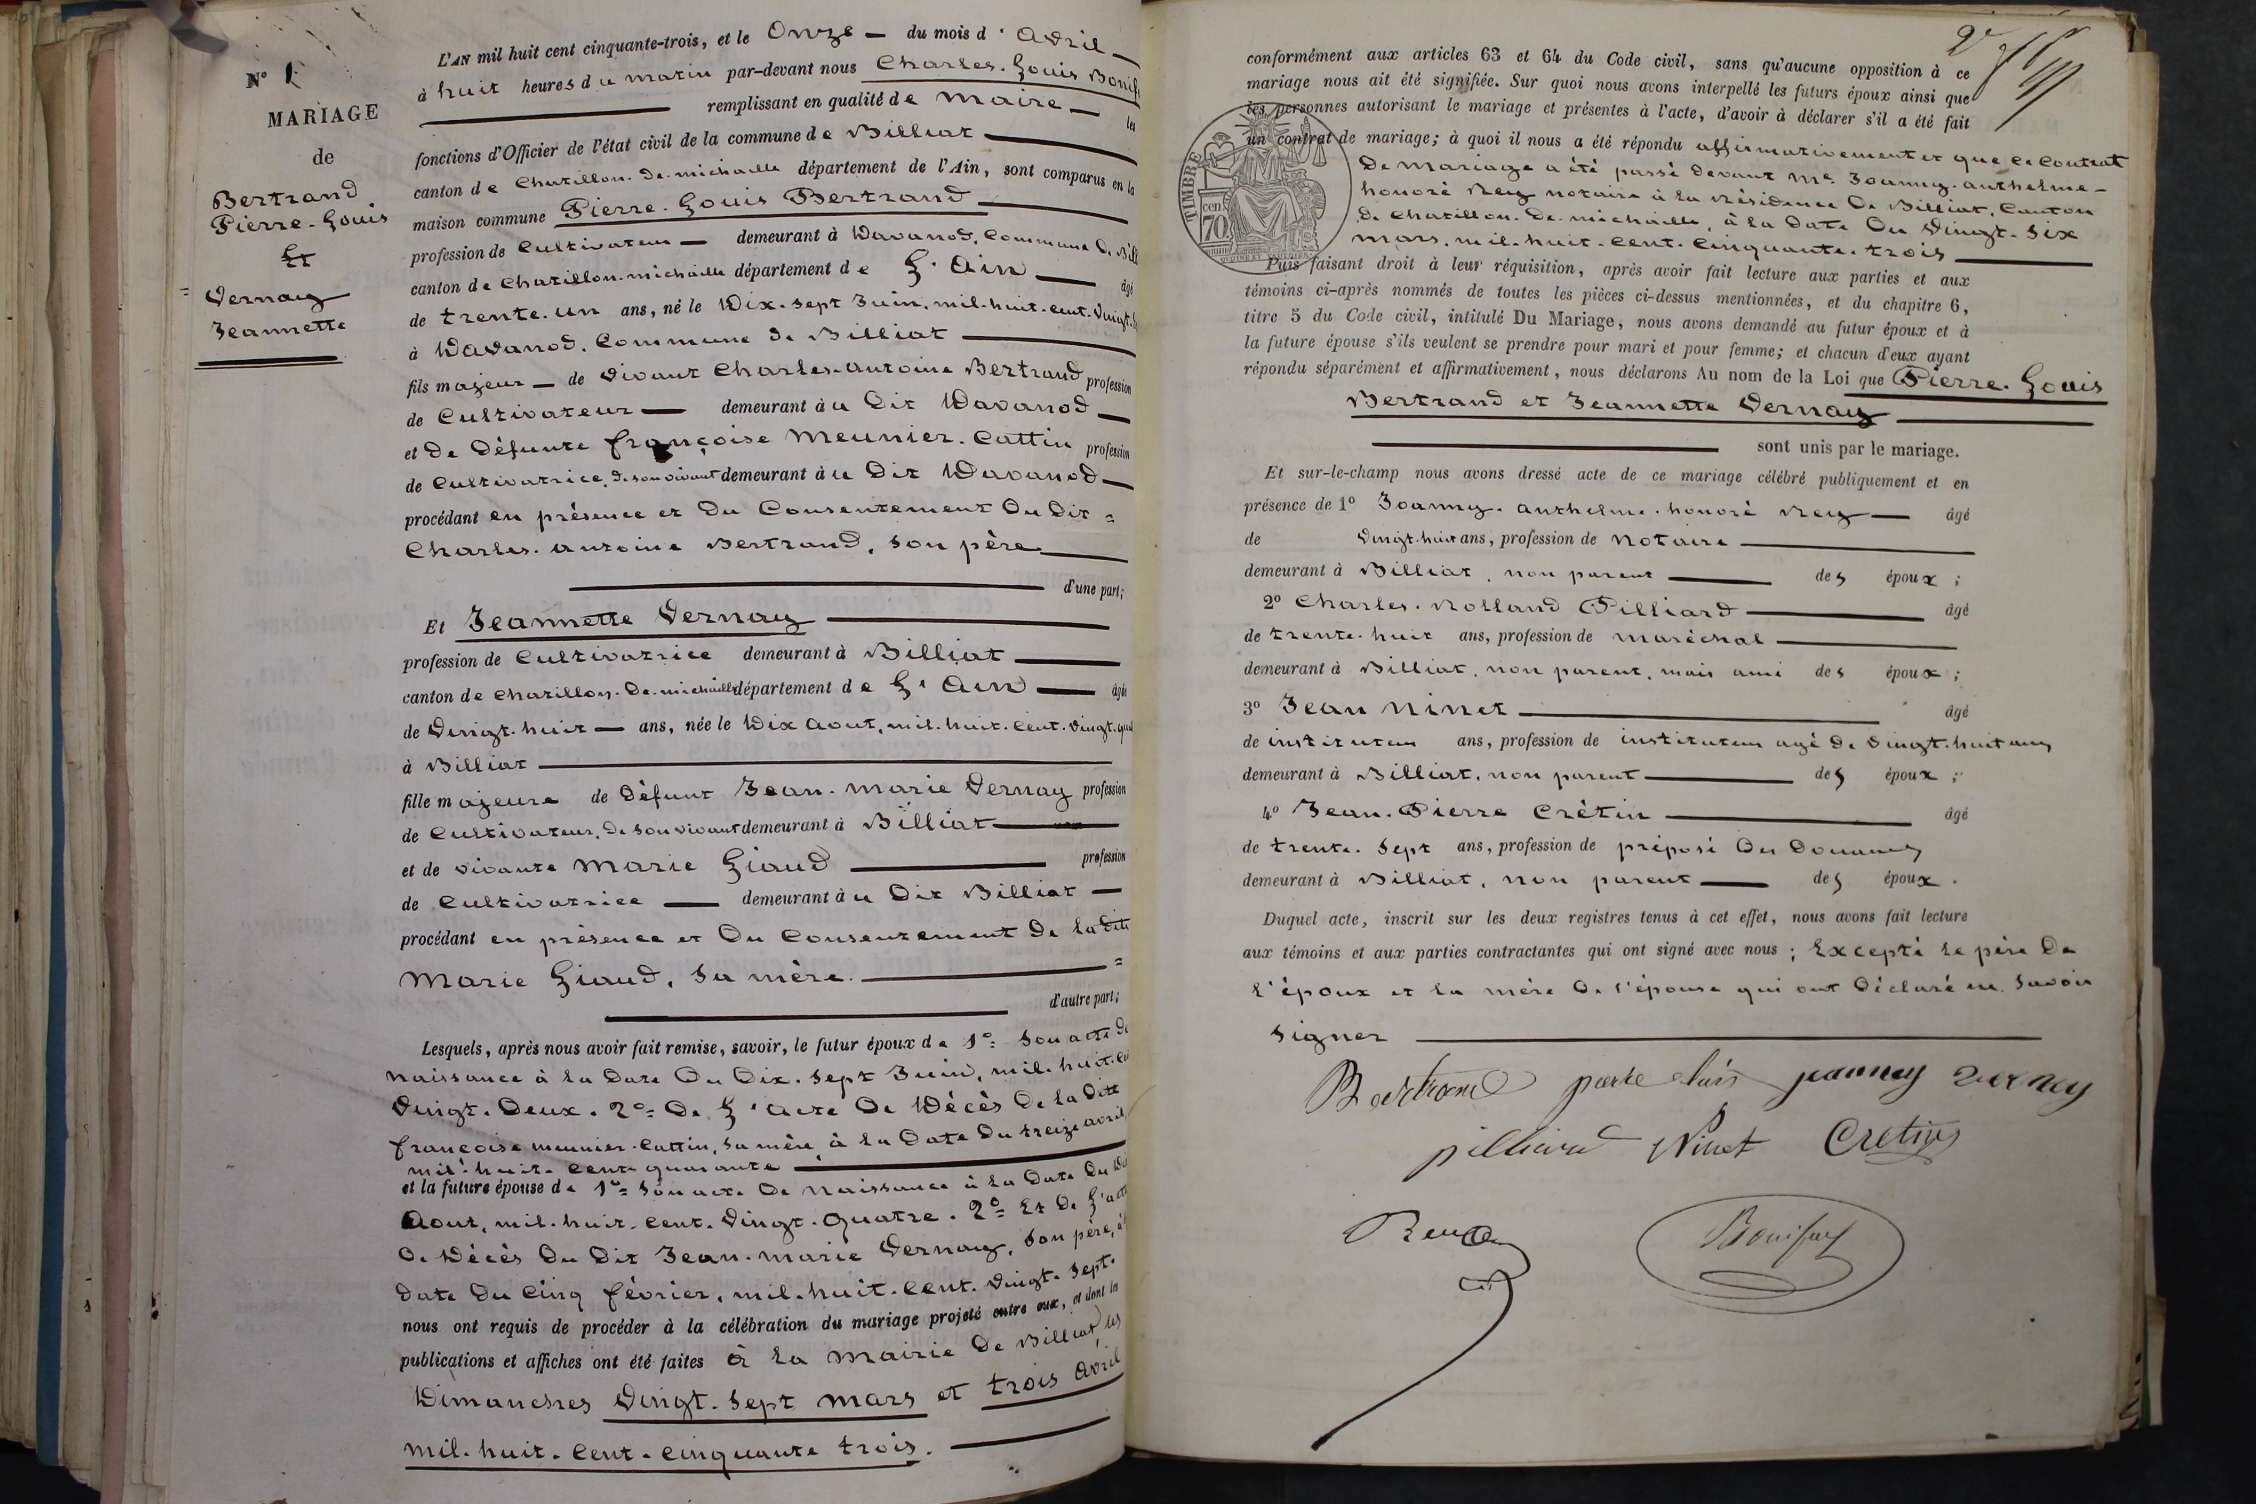 N° 1
MARIAGE
de
Bertrand
Pierre-Louis
Et
Vernay
Jeannette
L'AN mil huit cent cinquante-trois, et le Onze du mois d'Avril
à huit heures du matin par-devant nous Charles-Louis Bonif
remplissant en qualité de Maire les
fonctions d'Officier de l'état civil de la commune de Billiat
canton de Chatillon-de-michaille département de l'Ain, sont comparus en la
maison commune Pierre-Louis Bertrand
profession de Cultivateur demeurant à Davanod, Commune de Bill
canton de Chatillon-michaille département de L'Ain âgé
de trente-un ans, né le Dix-sept Juin, mil-huit-cent-vingt-
à Davanod, Commune de Billiat
fils majeur de vivant Charles-antoine Bertrand profession
de Cultivateur demeurant au Dit Davanod
et de Défunte françoise Meunier-Cattin profession
de Cultivatrice, de son vivant demeurant au Dit Davanod
procédant en présence et du Consentement du Dit =
Charles-antoine Bertrand, son père
d'une part;
Et Jeannette Vernay
profession de Cultivatrice demeurant à Billiat
canton de Chatillon-de-michaille département de L'Ain âgée
de vingt-huit ans, née le Dix Aout, mil-huit-cent-vingt-qua
à Billiat
fille majeure de Défunt Jean-marie Vernay profession
de Cultivateur, de son vivant demeurant à Billiat
et de vivante Marie Liaud profession
de Cultivatrice demeurant au Dit Billiat
procédant en présence et du Consentement de la dite
Marie Liaud, sa mère. =
d'autre part;
Lesquels, après nous avoir fait remise, savoir, le futur époux de 1°= son acte de
naissance à la Date du Dix-sept Juin, mil-huit-ce
vingt-Deux. 2°= de L'acte de Décès de la dite
françoise meunier-Cattin, sa mère, à la Date du treize avril
mil-huit-cent-quarante
et la future épouse de 1°= son acte de naissance à la Date du Dix
Aout, mil-huit-cent-vingt-quatre. 2°= Et de L'acte
de Décès du Dit Jean-marie Vernay, son père, à
date du Cinq février, mil-huit-cent-vingt-sept.
nous ont requis de procéder à la célébration du mariage projeté entre eux, et dont les
publications et affiches ont été faites à la Mairie de Billiat, les
Dimanches vingt-sept mars et trois avril
mil-huit-cent-cinquante trois.
conformément aux articles 63 et 64 du Code civil, sans qu'aucune opposition à ce
mariage nous ait été signifiée. Sur quoi nous avons interpellé les futurs époux ainsi que
les personnes autorisant le mariage et présentes à l'acte, d'avoir à déclarer s'il a été fait
un contrat de mariage; à quoi il nous a été répondu affirmativement et que ce Contrat
de mariage a été passé devant Me Joanny-anthelme-
honoré Rey notaire à la résidence de Billiat, Canton
de Chatillon-de-michaille, à la date du vingt-six
mars, mil-huit-cent-cinquante-trois
TIMBRE
70 cen
Puis faisant droit à leur réquisition, après avoir fait lecture aux parties et aux
témoins ci-après nommés de toutes les pièces ci-dessus mentionnées, et du chapitre 6,
titre 5 du Code civil, intitulé Du Mariage, nous avons demandé au futur époux et à
la future épouse s'ils veulent se prendre pour mari et pour femme; et chacun d'eux ayant
répondu séparément et affirmativement, nous déclarons Au nom de la Loi que Pierre-Louis
Bertrand et Jeannette Vernay
sont unis par le mariage.
Et sur-le-champ nous avons dressé acte de ce mariage célébré publiquement et en
présence de 1° Joanny-anthelme-honoré Rey âgé
de vingt-huit ans, profession de Notaire
demeurant à Billiat, non parent des époux;
2° Charles-Rolland Pilliard âgé
de trente-huit ans, profession de maréchal
demeurant à Billiat, non parent, mais ami des époux;
3° Jean Ninet âgé
de instituteur ans, profession de instituteur agé de vingt-huit ans
demeurant à Billiat, non parent des époux;
4° Jean-Pierre Crétin âgé
de trente-sept ans, profession de préposé des Douanes
demeurant à Billiat, non parent des époux.
Duquel acte, inscrit sur les deux registres tenus à cet effet, nous avons fait lecture
aux témoins et aux parties contractantes qui ont signé avec nous; Excepté le père de
L'époux et la mère de l'épouse qui ont déclaré ne savoir
signer
Bertrand jeanney verney
pilliard Ninet Cretin